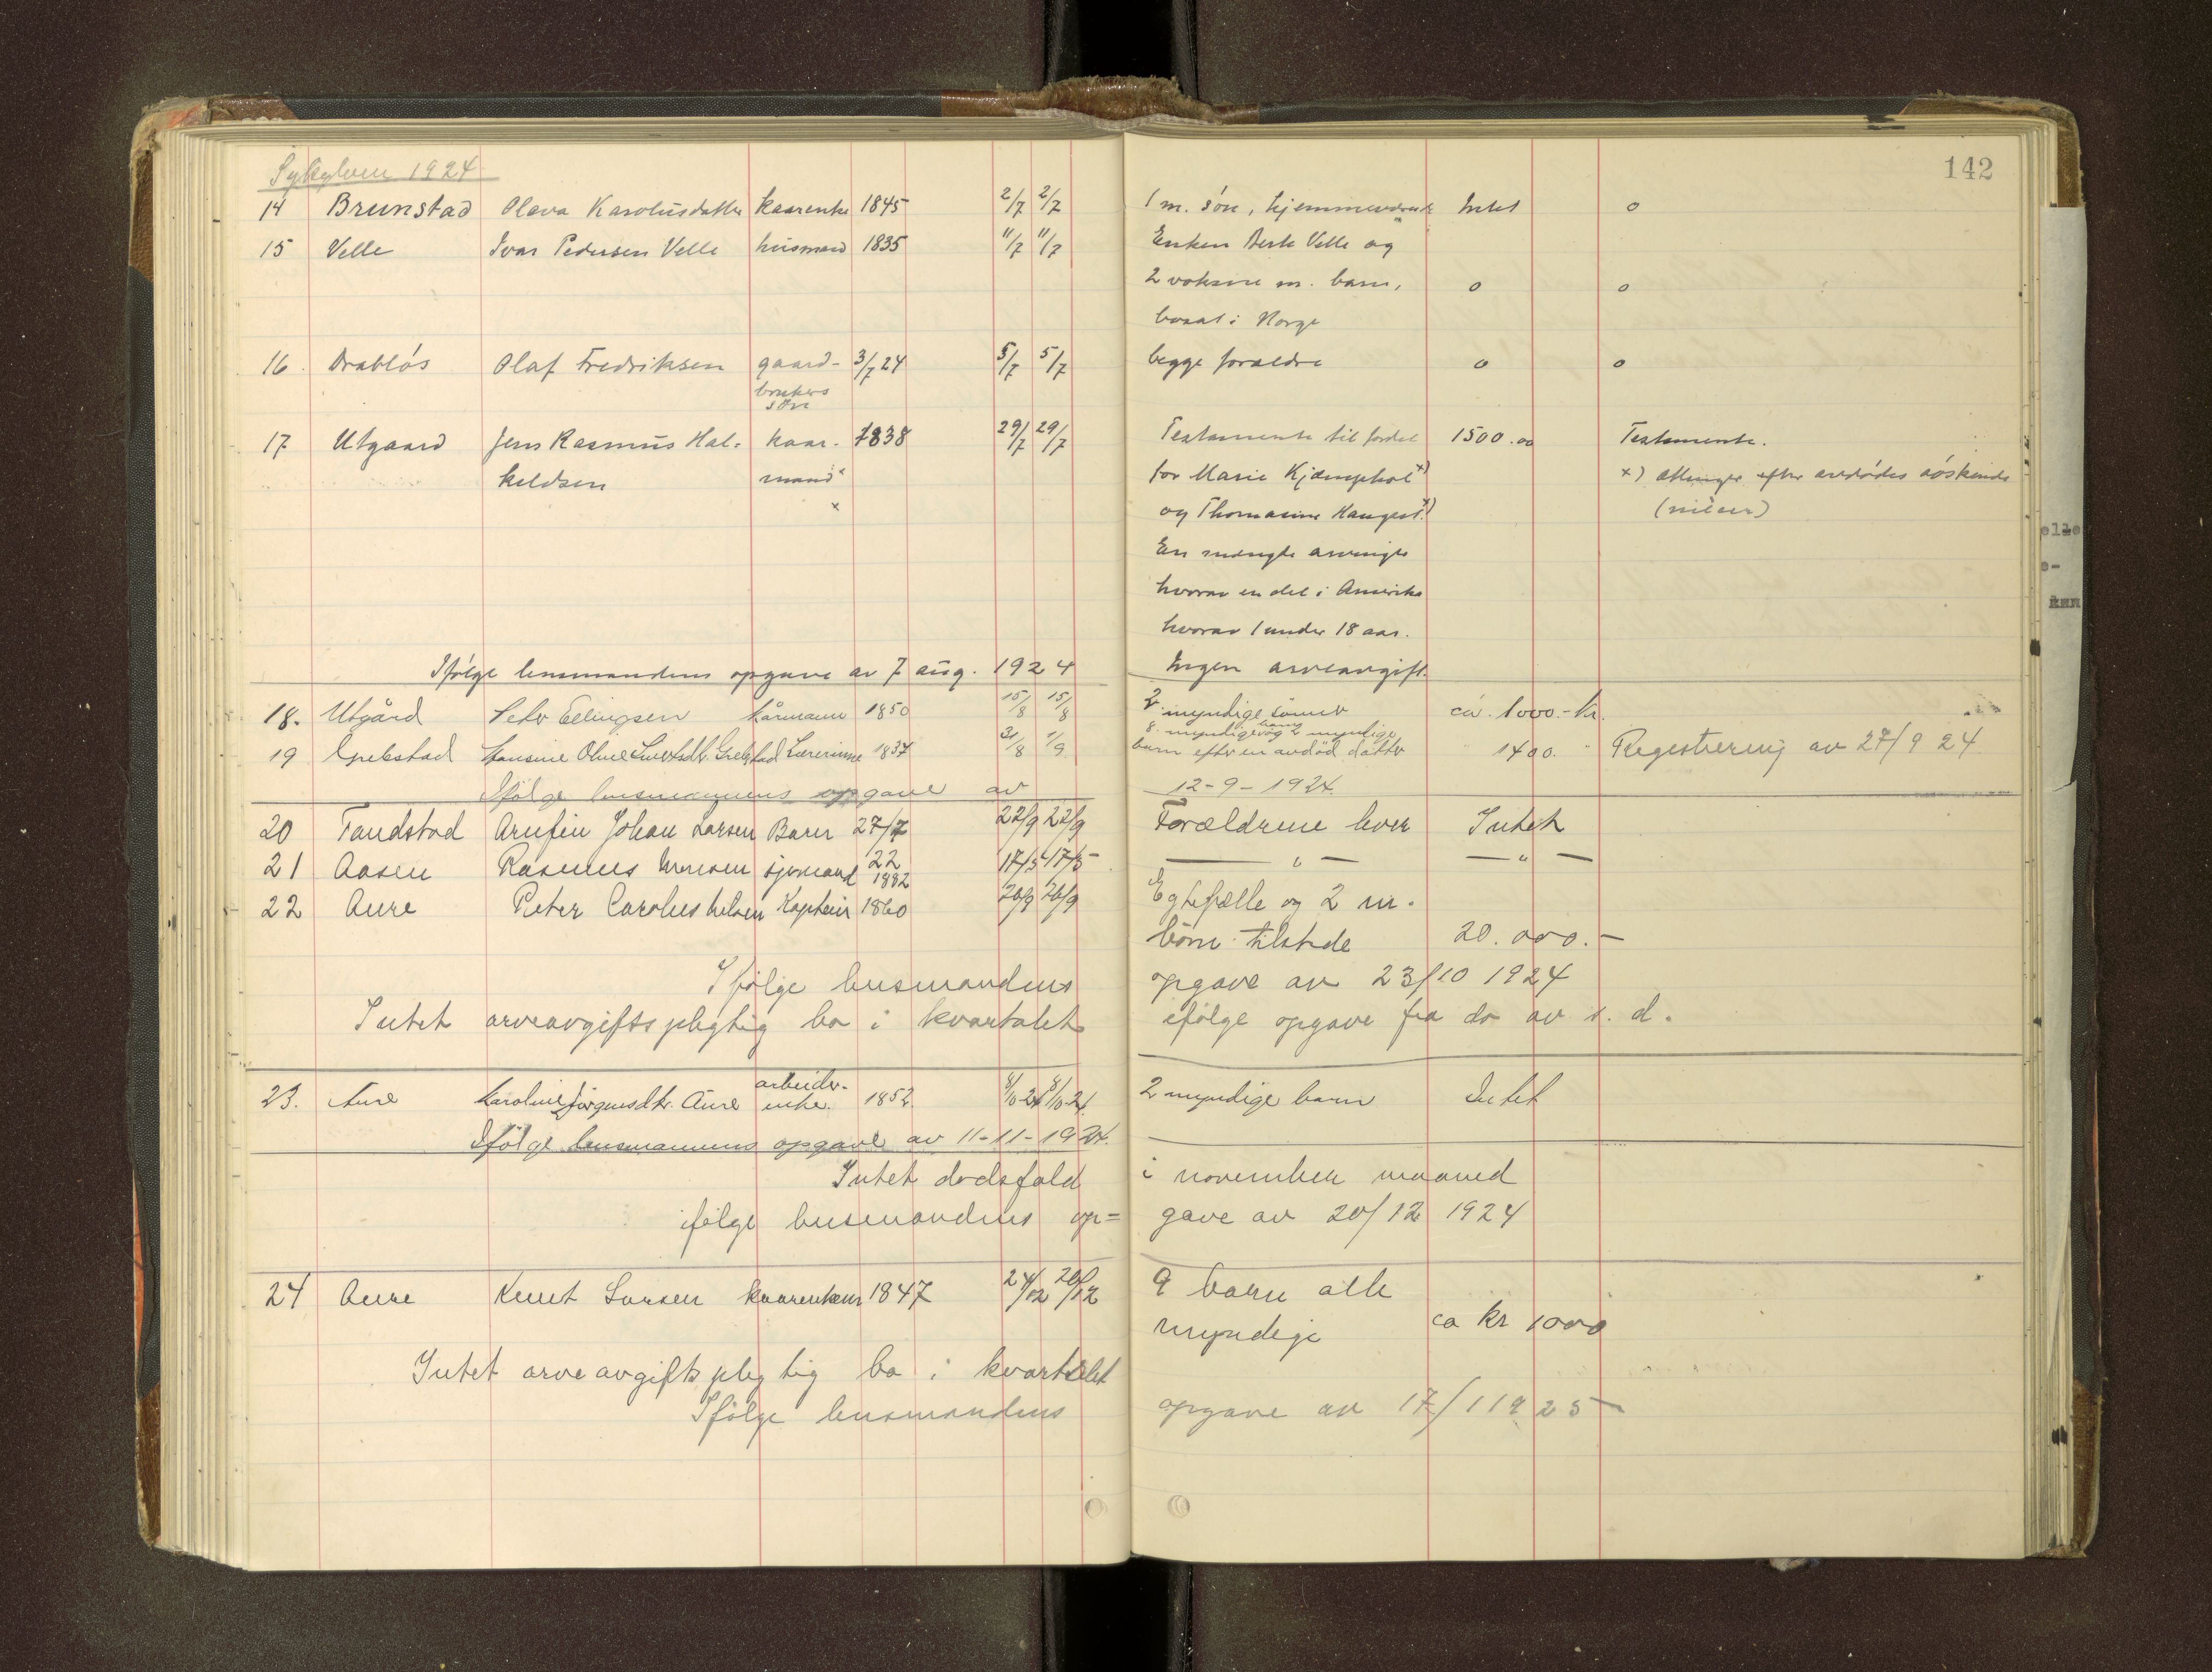 142
Sykylven 1924
14 Brunstad Olava Karolusdatter kaarenke 1845 2/7 2/7 1 m. sön, hjemmeværende Intet o
15 Velle Ivar Pedersen Velle husmand 1835 11/7 11/7 Enken Berte Velle og
2 voksne m. barn, o o
bosat i Norge
16 Drabløs Olaf Fredriksen gaard- 3/7 24 5/7 5/7 begge foreldre o o
brukers
søn
17 Utgaard Jens Rasmus Hal- kaar- 1838 29/7 29/7 Testamente til fordel 1500.00 Testamente.
keldsen mand x for Marie Kjæmphol x) x) Etlinger efter avdødes søskende
x og Thomasine Haugset x) (niecer)
En mængde arvinger
hvorav en del i Amerika
hvorav 1 under 18 aar.
Ifølge lensmandens opgave av 7 aug. 1924 Ingen arveavgift.
18. Utgård Peter Ellingsen kårmann 1850 15/8 15/8 2 myndige sönner ca. 1000.- kr.
19 Grebstad Hansine Oline Sivertsdtr. Grebstad Lærerinne 1837 31/8 1/9 8 myndige barn og 2 myndige
barn efter en avdöd datter 1400. " Registrering av 27/9 24
Ifölge lensmannens opgave av 12-9-1924.
20 Tandstad Arnfin Johan Larsen Barn 27/7 22/9 22/9 Forældrene lever Intet
21 Aasen Rasmus Monsen sjømand 22 1882 17/5 17/5 — " — — " —
22 Aure Peter Carolus Nilsen Kaptein 1860 26/9 26/9 Egtefælle og 2 m.
börn tilstede 20.000.-
Ifølge lensmandens opgave av 23/10 1924
Intet arveavgiftspligtig bo i kvartalet ifølge opgave fra do av s. d.
23. Aure Karoline Jörgensdtr. Aure arbeider-
enke. 1852 8/10 24 8/10 24 2 myndige barn Intet
Ifölge lensmannens opgave av 11-11-1924.
Intet dødsfald i november maaned
ifølge lensmandens op= gave av 20/12 1924
24 Aure Knut Larsen kaarenkem 1847 24/12 28/12 9 barn alle
myndige ca kr 1000
Intet arveavgiftspligtig bo i kvartalet
Ifølge lensmandens opgave av 17/1 1925
elle
e-